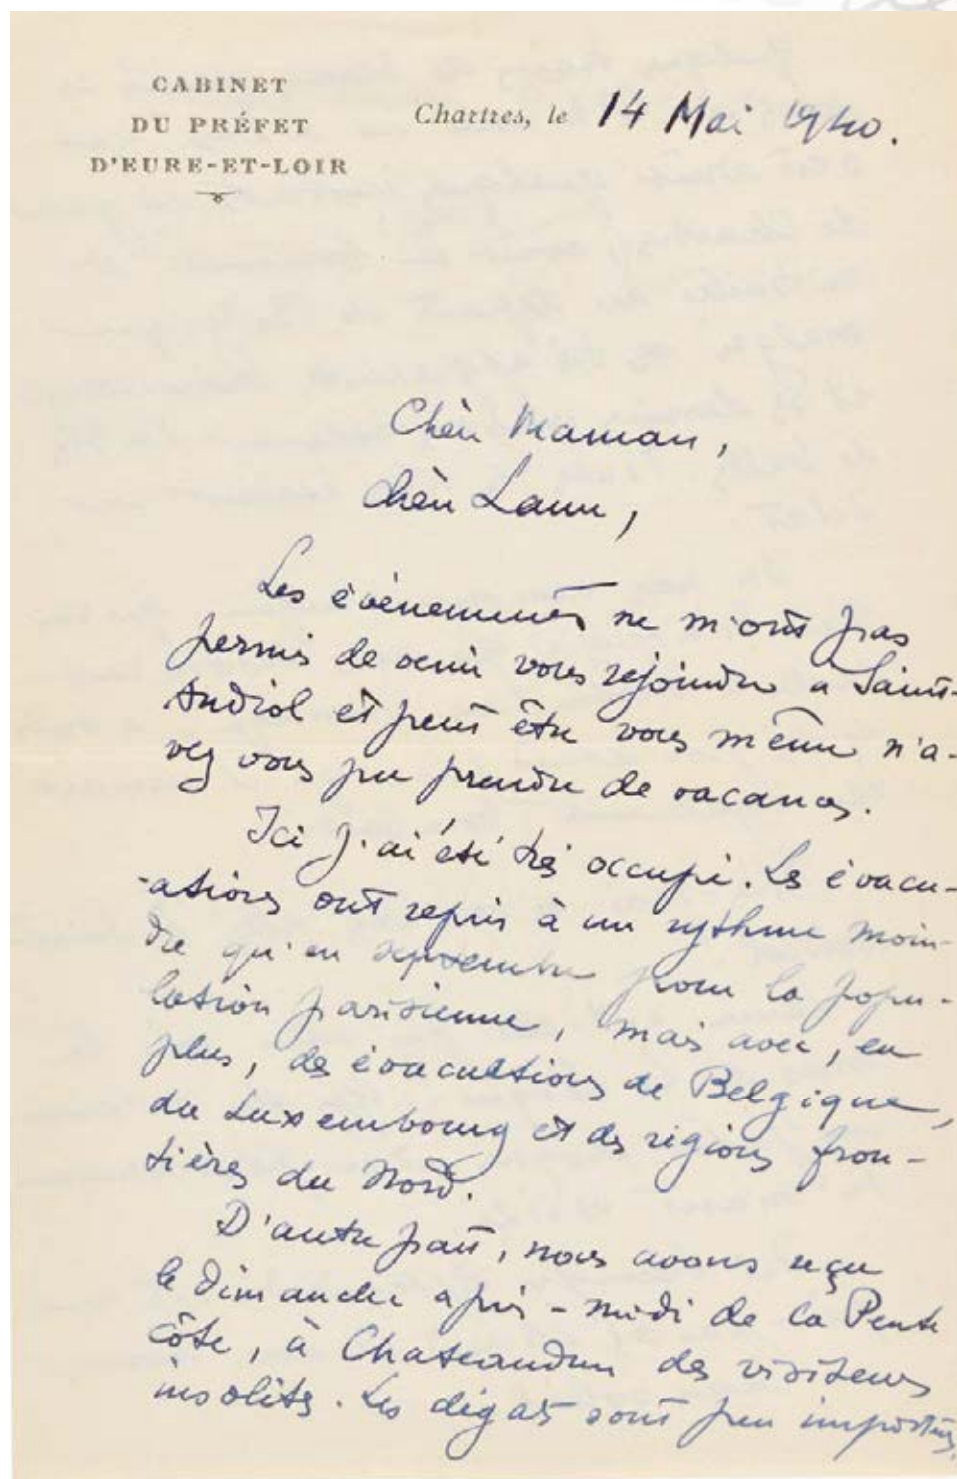 CABINET
DU PRÉFET
D'EURE-ET-LOIR
Chartres, le 14 Mai 1940.
Chère Maman,
chère Laure,
Les évènements ne m'ont pas
permis de venir vous rejoindre a Saint-
Andiol et peut être vous même n'a-
vez vous pu prendre de vacances.
Ici j'ai été très occupé. Les évacu-
-ations ont repris à un rythme moin-
dre qu'en septembre pour la popu-
lation parisienne, mais avec, en
plus, des évacuations de Belgique,
du Luxembourg et des régions fron-
tières du Nord.
D'autre part, nous avons reçu
le dimanche après-midi de la Pente
côte, à Chateaudun des visiteurs
insolites. Les dégats sont peu importants,